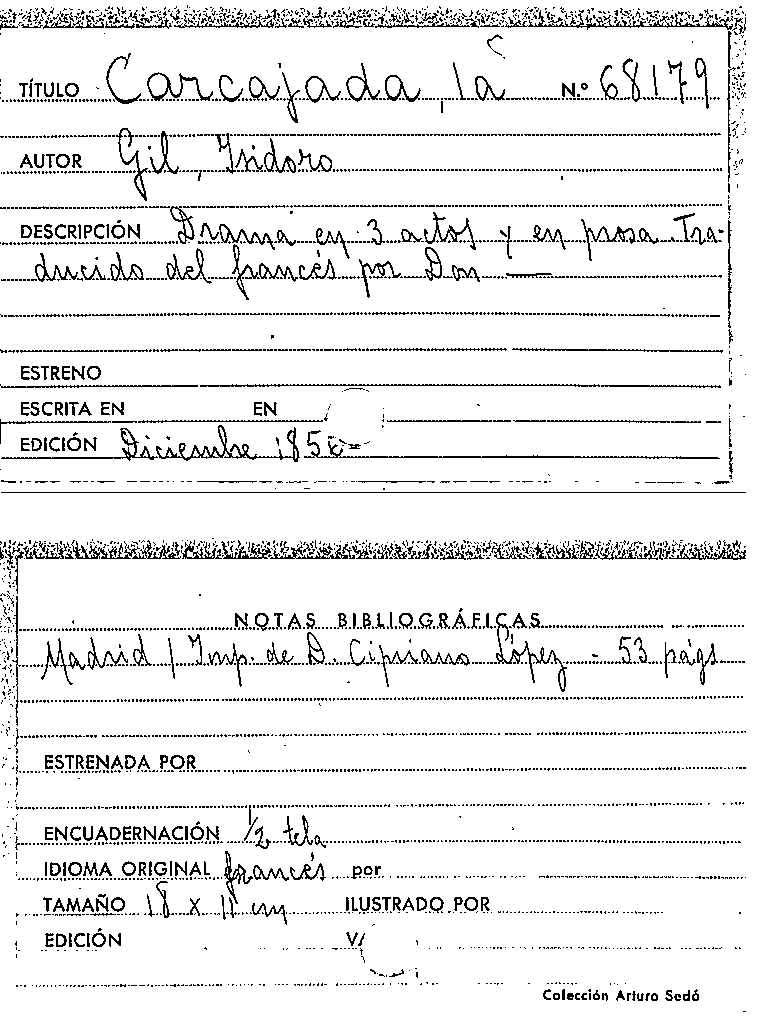 TÍTULO Carcajada, la N.º 68179
AUTOR Gil, Isidoro
DESCRIPCIÓN Drama en 3 actos y en prosa. Tra-
ducido del francés por Don —
ESTRENO
ESCRITA EN EN
EDICIÓN Diciembre
NOTAS BIBLIOGRÁFICAS
Madrid / Imp. de D. Cipriano López - 53 págs
ESTRENADA POR
ENCUADERNACIÓN 1/2 tela
IDIOMA ORIGINAL francés por
TAMAÑO 18 x 11 cm ILUSTRADO POR
EDICIÓN V/
Colección Arturo Sedó